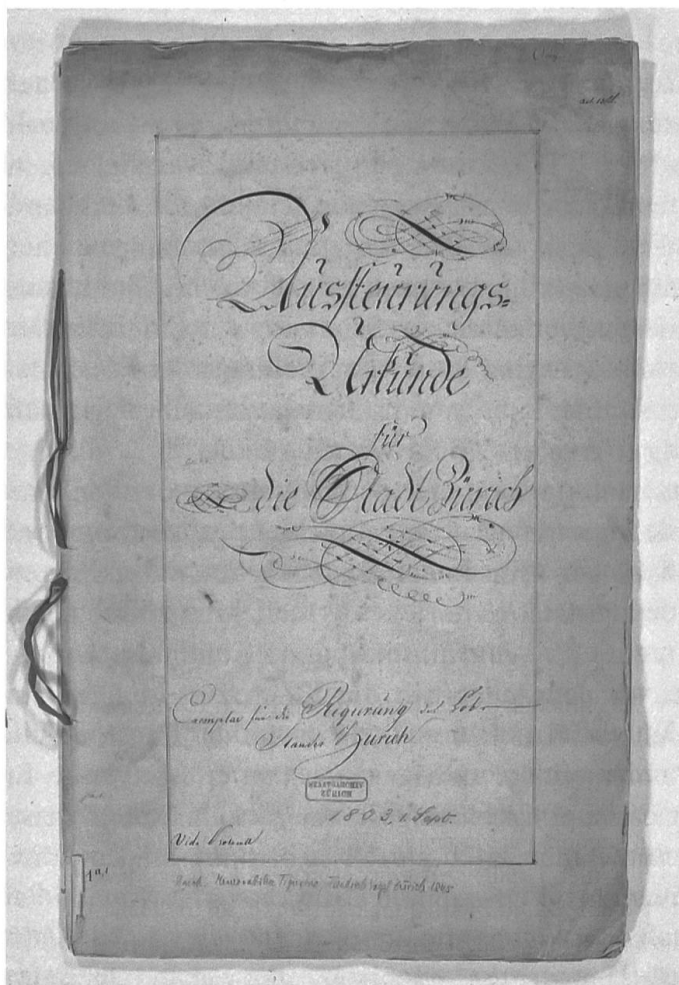 Aussteurungs=
Urkunde
für
die Stadt Zürich
Exemplar für die Regierung des Lob.
Standes Zürich
STAATSARCHIV
ZÜRICH
1803, 1. Sept.
Vide
Memorabilia Tigurina Zürich 1845
1a,1